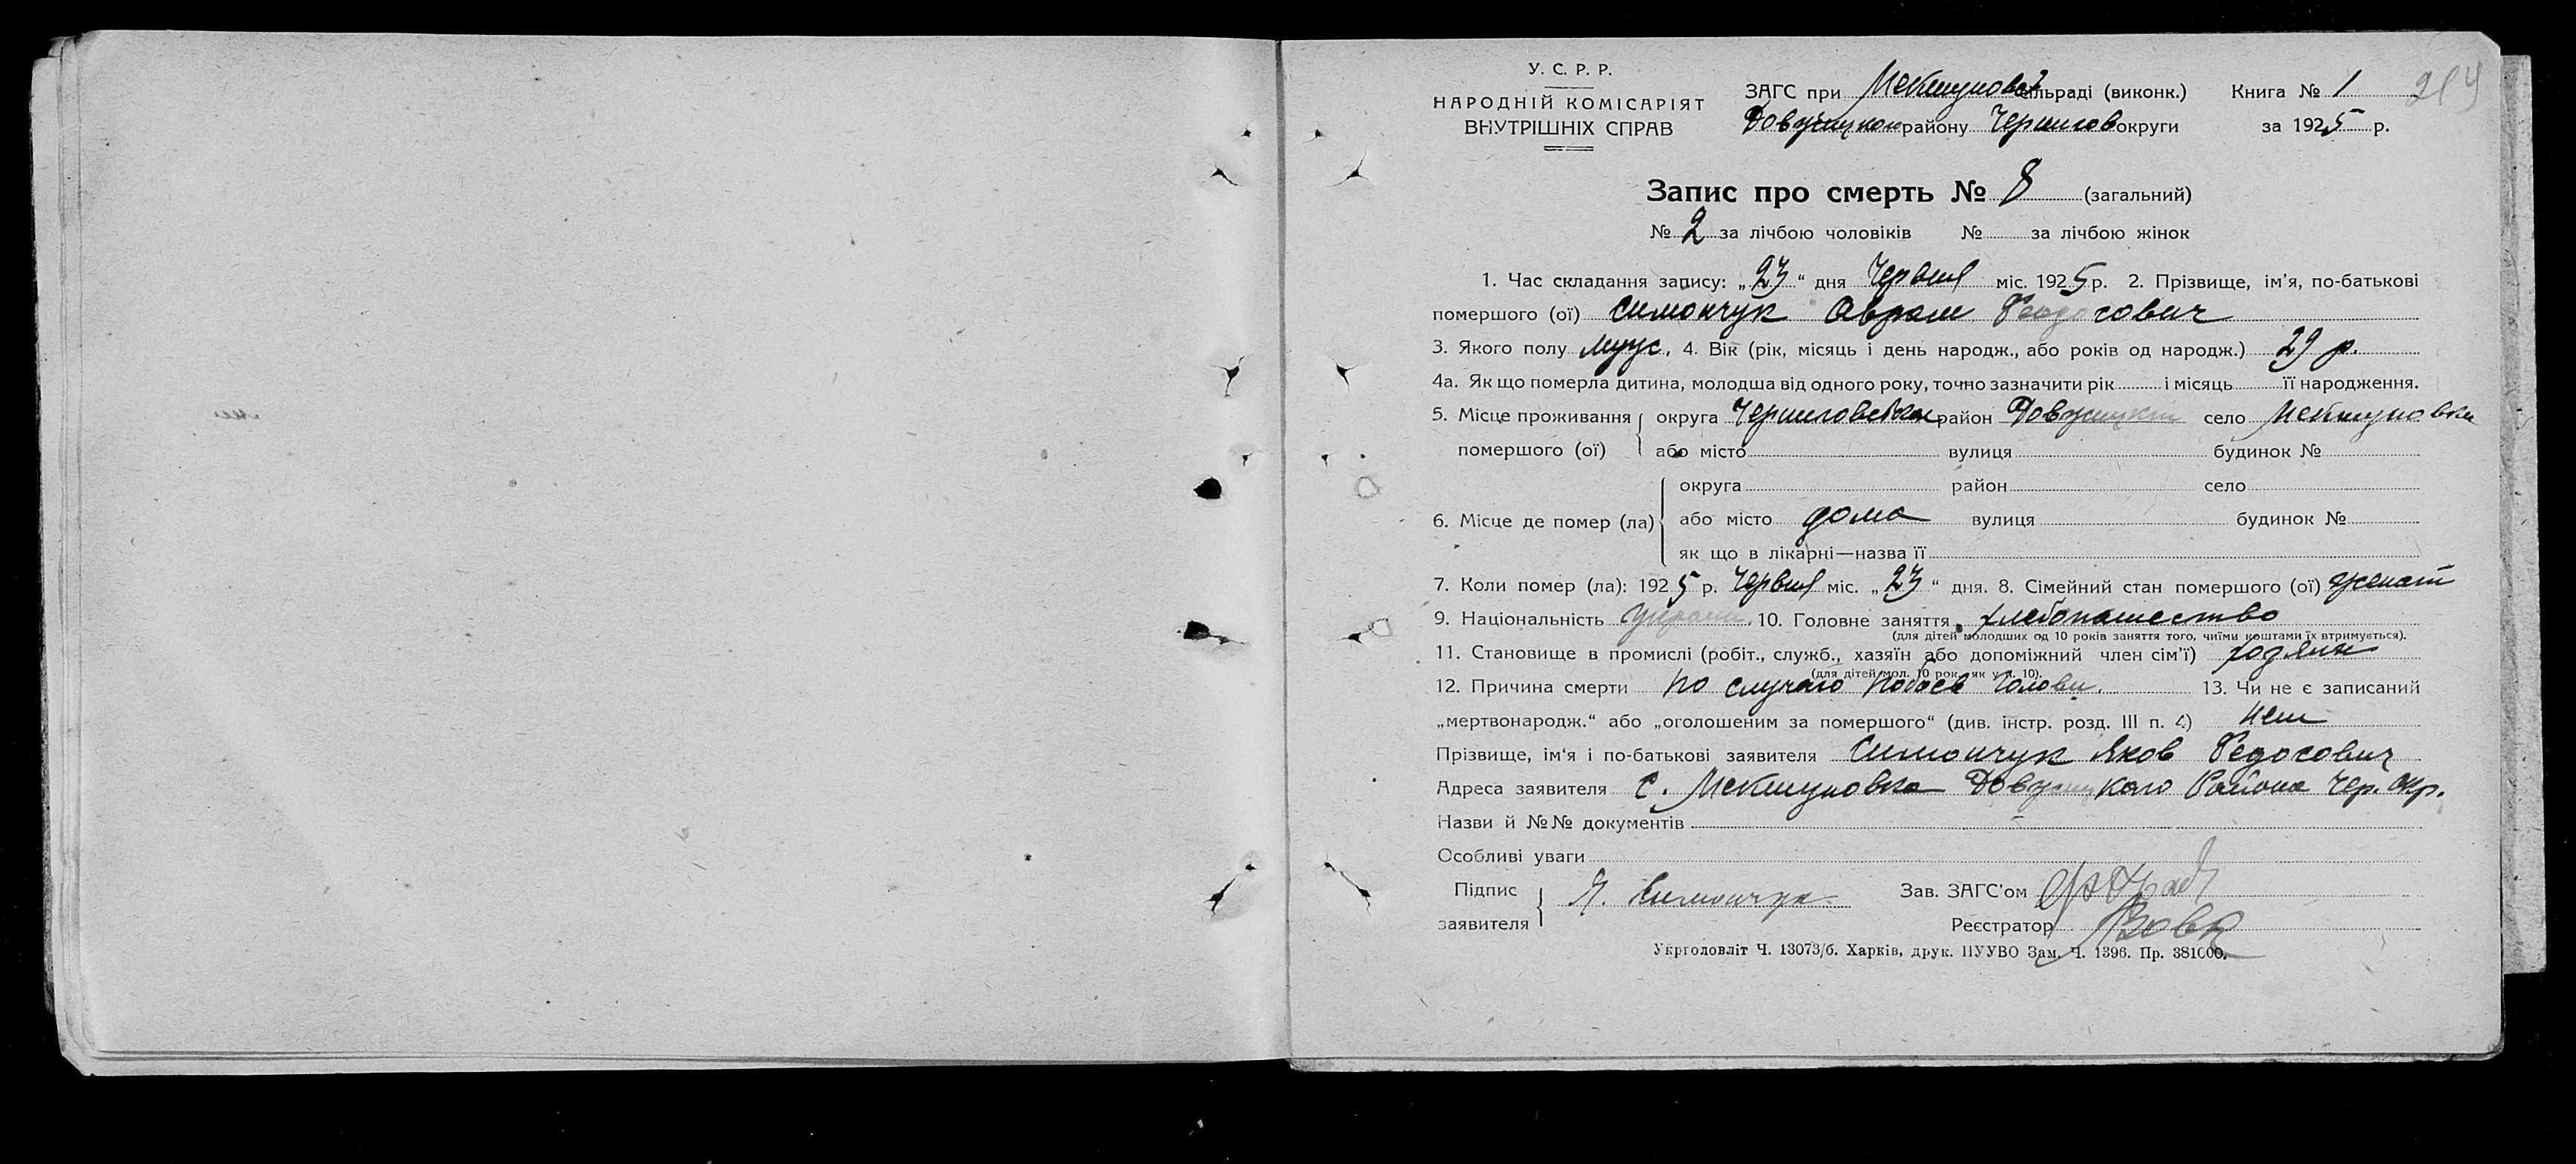 У. С. Р. Р.
НАРОДНІЙ КОМІСАРІЯТ
ВНУТРІШНІХ СПРАВ
ЗАГС при Мекшуновській сільраді (виконк.) Книга № 1
району Чернигов округи за 1925 р.
Запис про смерть № 8 (загальний)
№ 2 за лічбою чоловіків № за лічбою жінок
1. Час складання запису: „23“ дня Червня міс. 1925 р. 2. Прізвище, ім’я, по-батькові
помершого (ої) Симончук Аврам Феодосович
3. Якого полу муж. 4. Вік (рік, місяць і день народж., або років од народж.) 29 р.
4а. Як що померла дитина, молодша від одного року, точно зазначити рік і місяць її народження.
5. Місце проживання округа Черниговська район село Мекшуновка
помершого (ої) або місто вулиця будинок №
округа район село
6. Місце де помер (ла) або місто дома вулиця будинок №
як що в лікарні—назва її
7. Коли помер (ла): 1925 р. Червня міс. „23“ дня. 8. Сімейний стан помершого (ої) женат
9. Національність Украин. 10. Головне заняття хлебопашество
(для дітей молодших од 10 років заняття того, чиїми коштами їх втримується).
11. Становище в промислі (робіт., служб., хазяїн або допоміжний член сім’ї) хозяин
(для дітей мол. 10 рок. як у п. 10).
12. Причина смерти по случаю побоев Головы. 13. Чи не є записаний
„мертвонародж.“ або „оголошеним за помершого“ (див. інстр. розд. III п. 4) нет
Прізвище, ім‘я і по-батькові заявителя Симончук Яков Федосович
Адреса заявителя С. Мекшуновка Района Чер. Окр.
Назви й №№ документів
Особливі уваги
Підпис
заявителя Я. Симончук
Зав. ЗАГС’ом
Реєстратор Вовк
Укрголовліт Ч. 13073/б. Харків, друк. ПУУВО Зам. Ч. 1396. Пр. 381000.